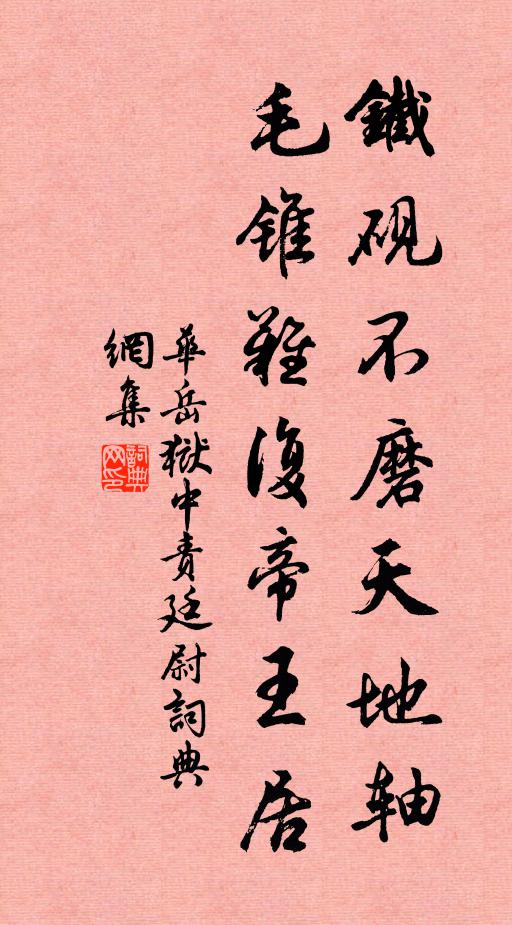 鐵硯不磨天地轴
毛錐難復帝王居
華岳獄中責廷尉詞典
網集
詞典网印